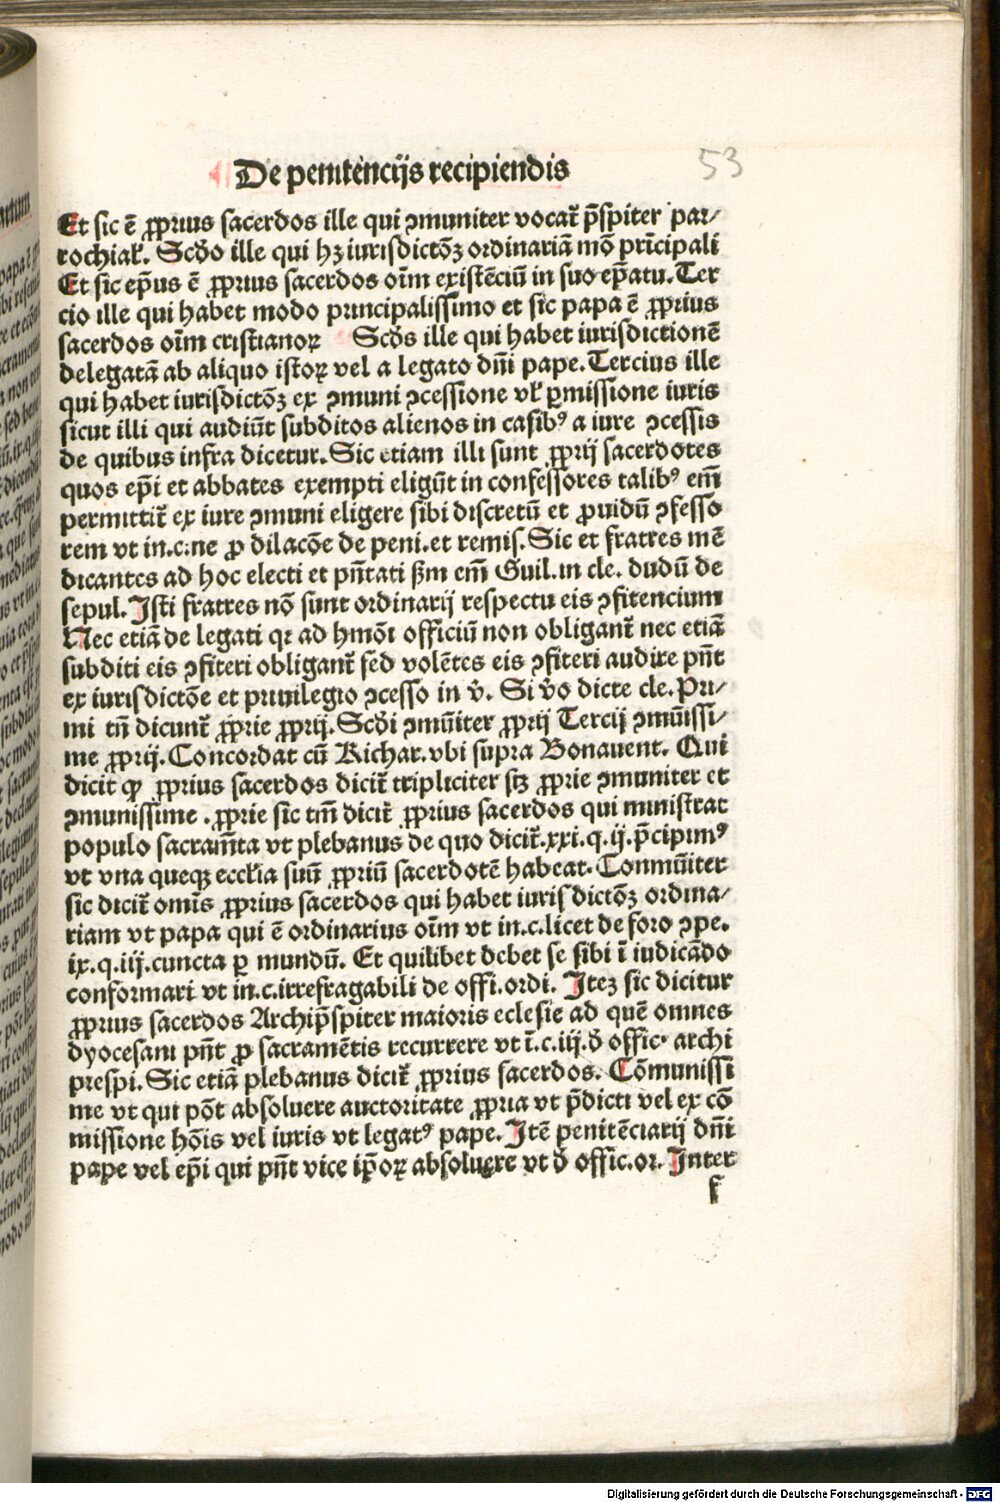 De penitencijs recipiendis
53
Et sic ē ꝓprius sacerdos ille qui ↄmuniter vocat᷑ p̄spiter par/
rochial᷑. Scd̓o ille qui hꝫ iurisdictōꝫ ordinariā mō prīcipali
Et sic ep̄us ē ꝓprius sacerdos oīm existēciū in suo ep̄atu. Ter
cio ille qui habet modo principalissimo et sic papa ē ꝓprius
sacerdos oīm cristianoꝝ Scd̓s ille qui habet iurisdictionē
delegatā ab aliquo istoꝝ vel a legato dn̄i pape. Tercius ille
qui habet iurisdictōꝫ ex ↄmuni ↄcessione vl᷑ ꝑmissione iuris
sicut illi qui audiūt subditos alienos in casibꝰ a iure ↄcessis
de quibus infra dicetur. Sic etiam illi sunt ꝓprij sacerdotes
quos ep̄i et abbates exempti eligūt in confessores talibꝰ em̄
permittit᷑ ex iure ↄmuni eligere sibi discretū et ꝓuidū ↄfesso
rem vt in.c.ne ꝓ dilacōe de peni.et remis. Sic et fratres mē
dicantes ad hoc electi et pn̄tati ẜm em̄ Guil.in cle. dudū de
sepul. Isti fratres nō sunt ordinarij respectu eis ↄfitencium
Nec etiā de legati qꝛ ad hmōi officiū non obligant᷑ nec etiā
subditi eis ↄfiteri obligant᷑ sed volētes eis ↄfiteri audire pn̄t
ex iurisdictōe et priuilegio ↄcesso in v̓. Si v̓o dicte cle. Pri/
mi tn̄ dicunt᷑ ꝓprie ꝓprij. Scd̓i ↄmūiter ꝓprij Tercij ↄmūissi/
me ꝓprij. Concordat cū Richar. vbi supra Bonauent. Qui
dicit ꝙ ꝓprius sacerdos dicit᷑ tripliciter sꝫ ꝓprie ↄmuniter et
ↄmunissime . ꝓprie sic tm̄ dicit᷑ ꝓprius sacerdos qui ministrat
populo sacram̄ta vt plebanus de quo dicit᷑.xxi.q.ij.p̄cipimꝰ
vt vna queqꝫ eccl᷑ia suū ꝓpriū sacerdotē habeat. Conmūiter
sic dicit᷑ omīs ꝓprius sacerdos qui habet iurisdictōꝫ ordina/
riam vt papa qui ē ordinarius oīm vt in.c.licet de foro ↄpe.
ix.q.iij.cuncta ꝑ mundū. Et quilibet debet se sibi ī iudicādo
conformari vt in.c.irrefragabili de offi.ordi. Iteꝫ sic dicitur
ꝓprius sacerdos Archip̄spiter maioris eclesie ad quē omnes
dyocesani pn̄t ꝓ sacramētis recurrere vt ī.c.iij.d̓ offic. archi
prespi. Sic etiā plebanus dicit᷑ ꝓprius sacerdos. Cōmunissi
me vt qui pōt absoluere auctoritate ꝓpria vt p̄dicti vel ex cō
missione hōis vel iuris vt legatꝰ pape. Itē penitēciarij dn̄i
pape vel ep̄i qui pn̄t vice ip̄oꝝ absoluere vt d̓ offic.or. Inter
f
Digitalisierung gefördert durch die Deutsche Forschungsgemeinschaft - DFG